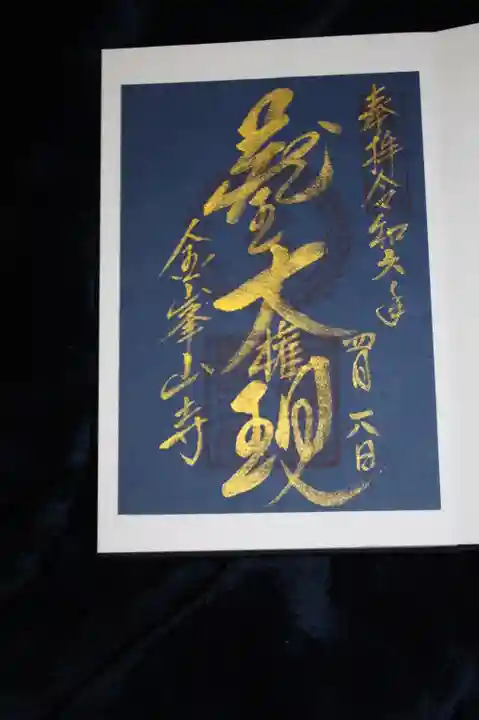 奉拝 令和六年 四月八日
龍王大権現
金峯山寺